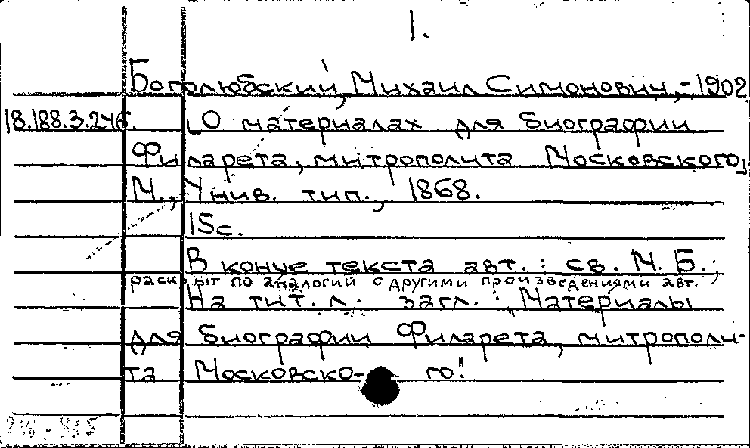 1.
Боголюбский, Михаил Симонович, -1902
18.188.3.246. О материалах для биографии
Филарета, митрополита Московского,
М., Унив. тип., 1868.
15с.
В конце текста авт.: св. М. Б.;
раскрыт по аналогии с другими произведениями авт.
На тит. л. загл.: Материалы
для биографии Филарета, митрополи-
та Московско- го!